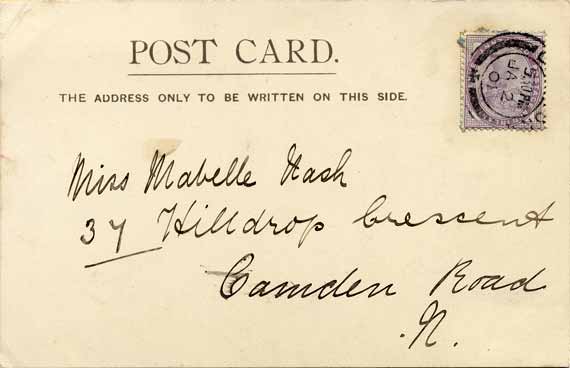 POST CARD.
THE ADDRESS ONLY TO BE WRITTEN ON THIS SIDE.
JA 2
01
Miss Mabelle Nash
37 Hilldrop Crescent
Camden Road
.N.